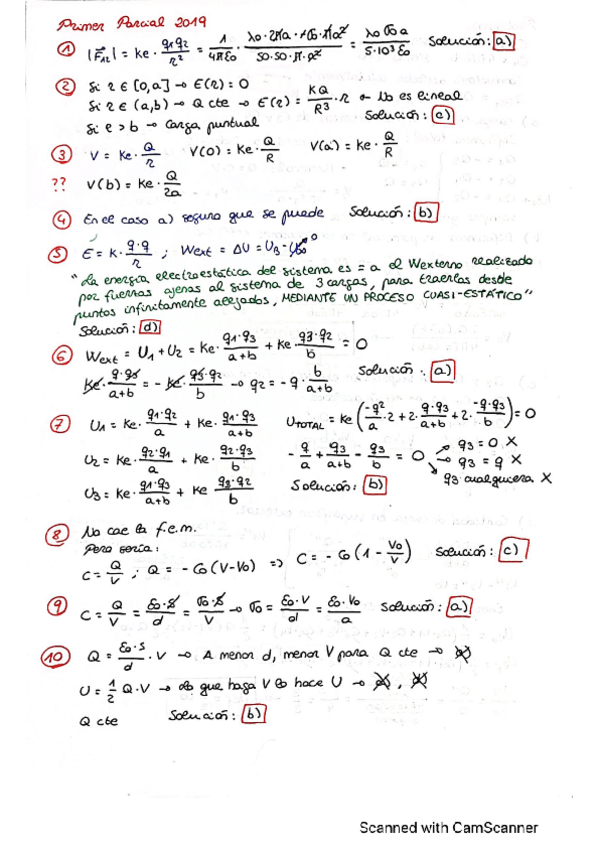 Primer Parcial 2019
① |F₁₂| = Ke · q1q2/r² = 1/4πε0 · λ0·2πa·σ0·πa²/50·50·π·a² = λ0σ0a/5·10³ε0 Solución: a)
② Si r ∈ [0,a] → E(r) = 0
Si r ∈ (a,b) → Q cte → E(r) = KQ/R³ · r ← No es lineal
Si r > b → Carga puntual Solución: c)
③ V = Ke · Q/r V(0) = Ke · Q/R V(a) = Ke · Q/R
?? V(b) = Ke · Q/2a
④ En el caso a) seguro que se puede Solución: b)
⑤ E = K · q·q/r ; Wext = ΔU = UB - U∞ 0
"La energía electroestática del sistema es = a el Wexterno realizado
por fuerzas ajenas al sistema de 3 cargas, para traerlas desde
puntos infinitamente alejados, MEDIANTE UN PROCESO CUASI-ESTÁTICO"
Solución: d)
⑥ Wext = U1 + U2 = Ke · q1·q3/a+b + Ke · q3·q2/b = 0
Ke · q·q3/a+b = - Ke · q3·q2/b → q2 = -q · b/a+b Solución: a)
⑦ U1 = Ke · q1·q2/a + Ke · q1·q3/a+b UTOTAL = Ke (-q²/a · 2 + 2 · q·q3/a+b + 2 · -q·q3/b) = 0
U2 = Ke · q2·q1/a + Ke · q2·q3/b - q/a + q3/a+b - q3/b = 0 q3 = 0 X
q3 = q X
U3 = Ke · q1·q3/a+b + Ke q3·q2/b Solución: b) q3 cualquiera X
⑧ No cae la f.e.m.
Pero sería:
C = Q/V ; Q = - C0 (V-V0) => C = - C0 (1 - V0/V) Solución: c)
⑨ C = Q/V = ε0·S/d = σ0·S/V → σ0 = ε0·V/d = ε0·V0/a Solución: a)
⑩ Q = ε0·S/d · V → A menor d, menor V para Q cte → a)
U = 1/2 Q·V → lo que haga V lo hace U →
Q cte Solución: b)
Scanned with CamScanner